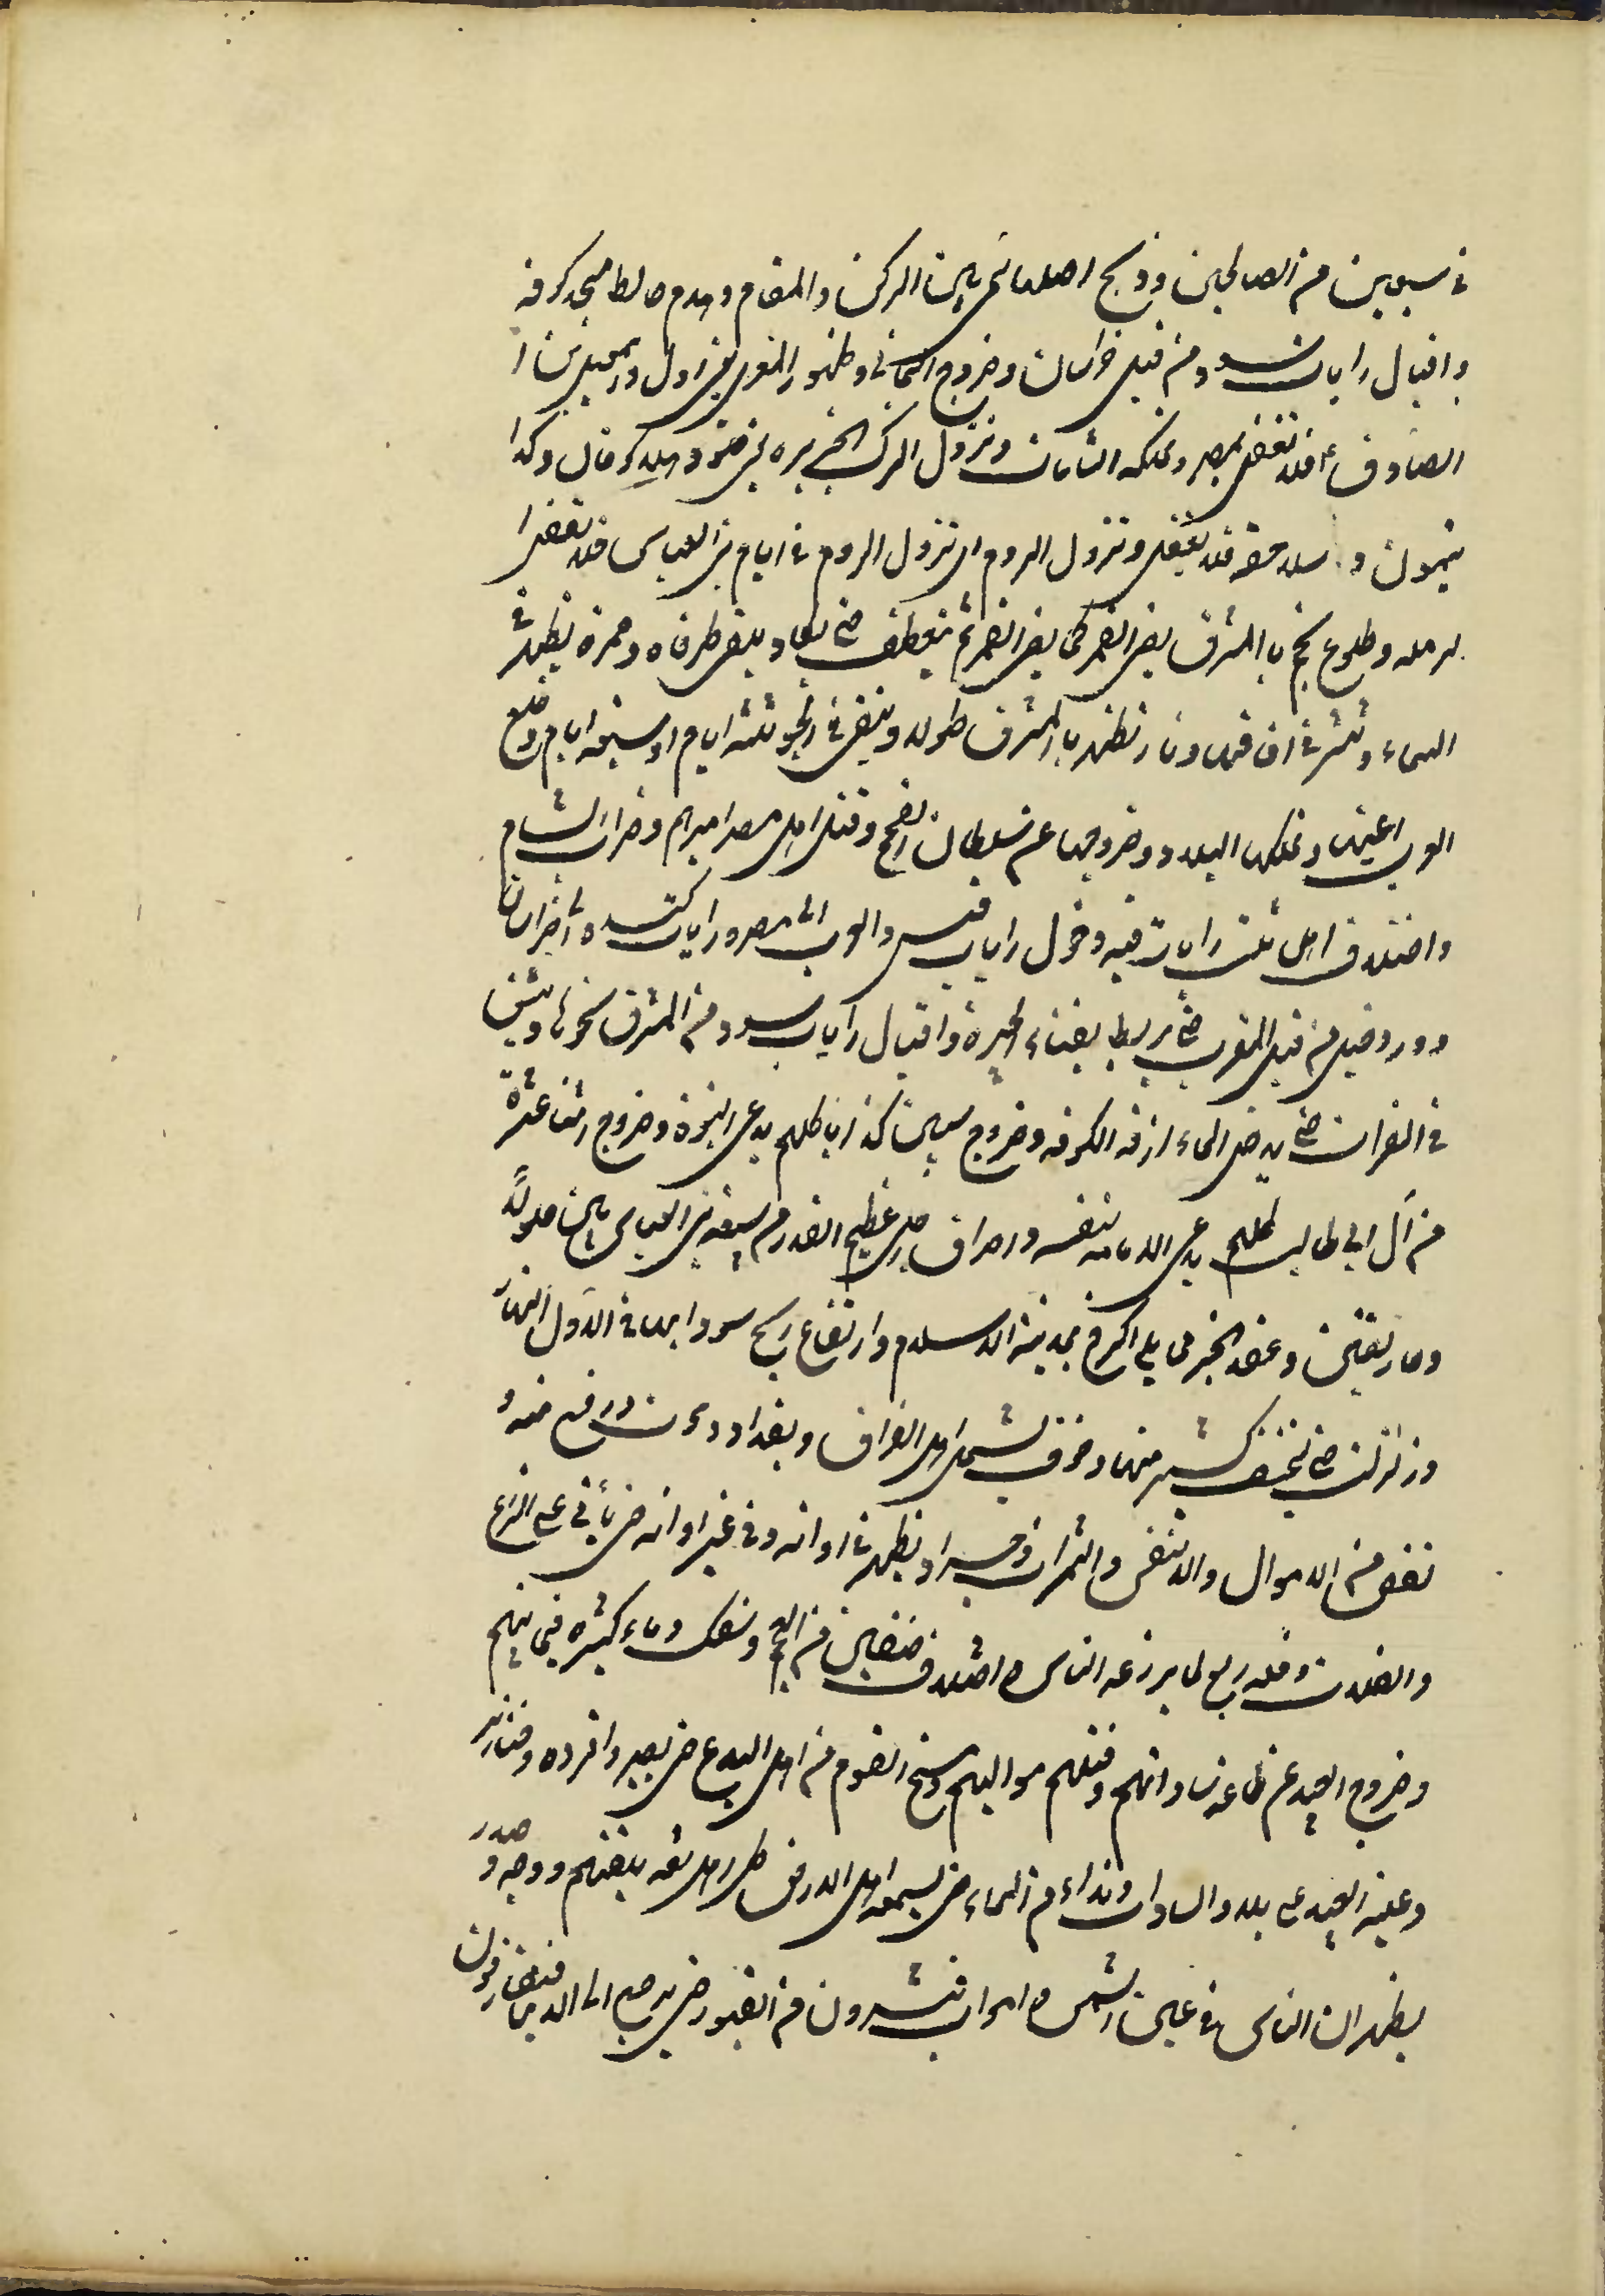 في سبعين من الصالحين وذبح رجل هاشمي بين الركن والمقام وهدم حائط مسجد كوفه
واقبال رايات سود من قبل خراسان وخروج اليماني وظهور المغربي
الصادق ع بمصر وتملكه الشامات ونزول الترك الجزيره
ونزول الروم اي نزول الروم في ايام بني العباس
لرمله وطلوع نجم بالمشرق يضئ القمر كما يضئ القمر ثم ينعطف حتى يكاد يلتقي طرفاه وحمرة يظهر في
السماء وتنتشر في افاقها ونار تظهر بالمشرق طولا وتبقى في الجو ثلثة ايام او سبعة ايام وخلع
العرب اعنتها وتملكها البلاد وخروجها عن سلطان العجم وقتل اهل مصر اميرهم وخراب الشام
واختلاف اهل ثلث رايات فيه ودخول رايات قيس والعرب الى مصر ورايات كنده الى خراسان
وورود خيل من قبل المغرب حتى يربط بفناء الحيرة واقبال رايات سود من المشرق نحوها وبثق
في الفرات حتى يدخل الماء ازقه الكوفه وخروج ستين كذابا كلهم يدعى النبوة وخروج اثنا عشرة
من آل ابي طالب كلهم يدعى الامامه لنفسه واحراق رجل عظيم القدر من شيعه بني العباس بين جلولا
وخانقين وعقد الجسر مما يلي الكرخ بمدينة السلام وارتفاع ريح سودا بها في اول النهار
وزلزلت حتى ينخسف كثير منها وخوف يشمل اهل العراق وبغداد وموت ذريع فيه و
نقص من الاموال والانفس والثمرات وجراد يظهر في اوانه وفي غير اوانه حتى يأتي على الزرع
والغلات وقله ريع لما يزرعه الناس واختلاف صنفين من العجم وسفك دماء كثيره فيما بينهم
وخروج العبيد عن طاعه ساداتهم وقتلهم مواليهم ومسخ القوم من اهل البدع حتى يصيروا قرده وخنازير
وغلبة العبيد على بلاد السادات ونداء من السماء حتى يسمعه اهل الارض كل اهل لغه بلغتهم ووجه وصدر
يظهران للناس في عين الشمس واموات ينشرون من القبور حتى يرجع الى الدنيا فيتعارفون